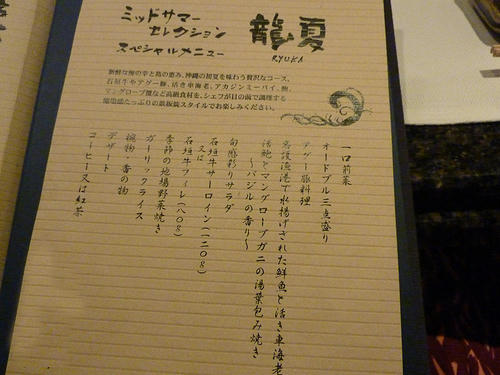 龍夏
RYUKA
ミッドサマー
セレクション
スペシャルメニュー
新鮮な海の幸と島の恵み、沖縄の初夏を味わう贅沢なコース。
石垣牛やアグー豚、活き車海老、アカジンミーバイ、鮑、
マングローブ蟹など高級食材を、シェフが目の前で調理する
臨場感たっぷりの鉄板焼スタイルでお楽しみください。
一口前菜
オードブル三点盛り
アグー豚料理
名護漁港で水揚げされた鮮魚と活き車海老
活鮑とマングローブガニの湯葉包み焼き
～バジルの香り～
旬感彩りサラダ
石垣牛サーロイン（一二〇g）
又は
石垣牛フィレ（八〇g）
季節の地場野菜焼き
ガーリックライス
椀物・香の物
デザート
コーヒー又は紅茶